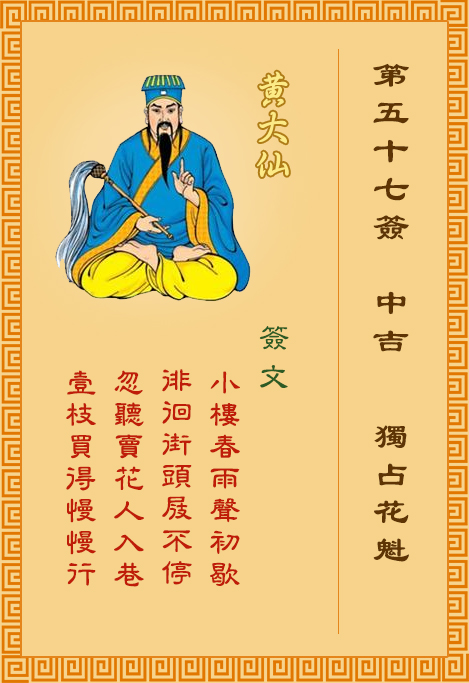 第五十七簽 中吉 獨占花魁
黃大仙
簽文
小樓春雨聲初歇
徘徊街頭屐不停
忽聽賣花人入巷
壹枝買得慢慢行